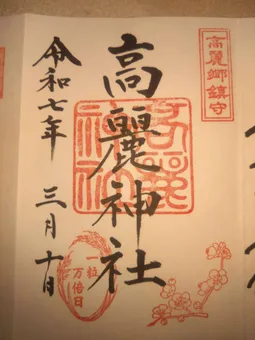 高麗郷鎮守
高麗神社
令和七年 三月十日
一粒
万倍日